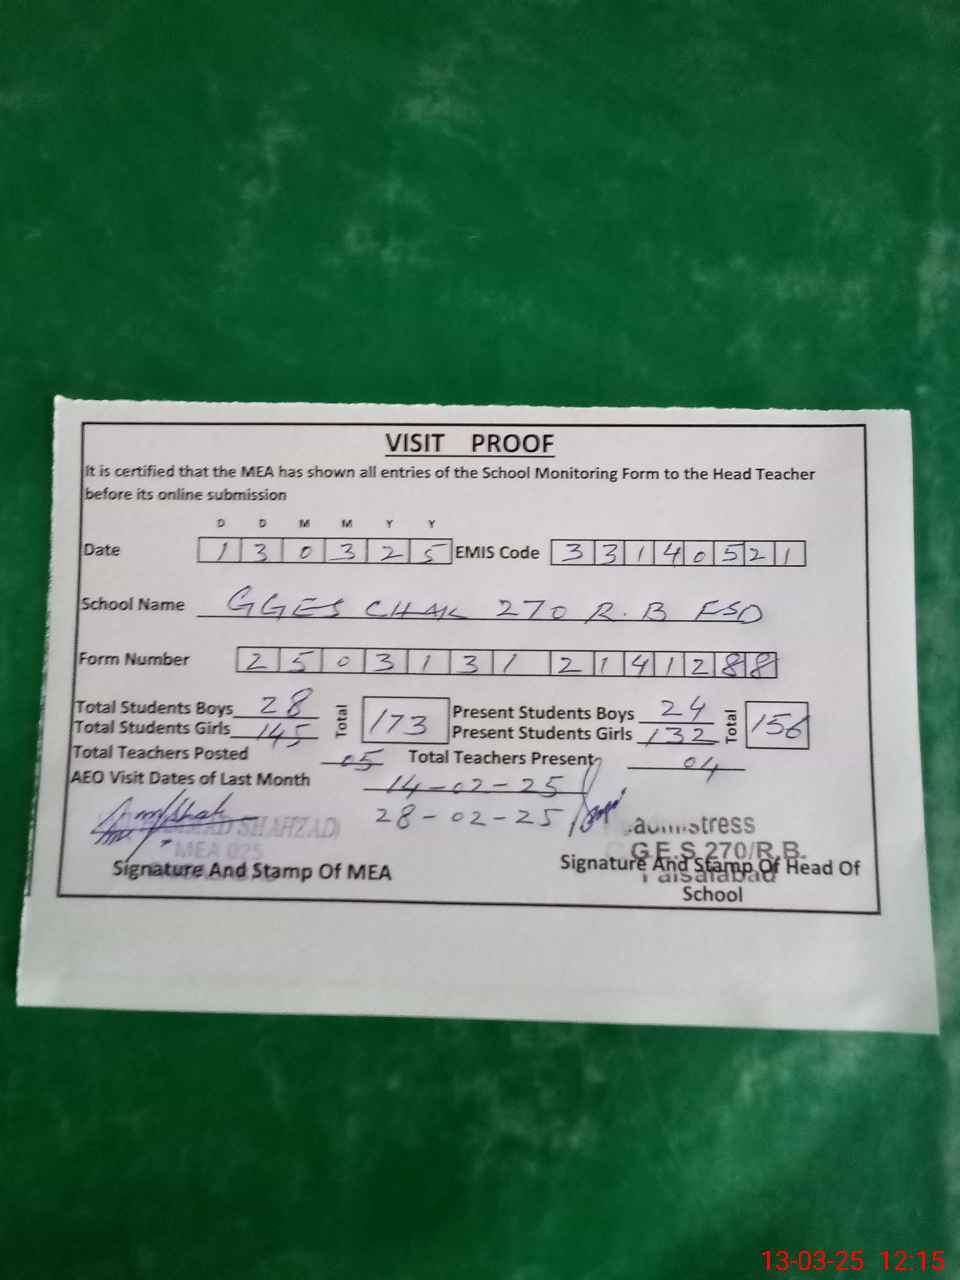 VISIT PROOF
It is certified that the MEA has shown all entries of the School Monitoring Form to the Head Teacher
before its online submission
D D M M Y Y
Date 1 3 0 3 2 5 EMIS Code 3 3 1 4 0 5 2 1
School Name GGES CHAK 270 R.B FSD
Form Number 2 5 0 3 1 3 1 2 1 4 1 2 8 8
Total Students Boys 28 Total 173 Present Students Boys 24 Total 156
Total Students Girls 145 Present Students Girls 132
Total Teachers Posted 05 Total Teachers Present 04
AEO Visit Dates of Last Month 14-02-25
28-02-25
SHAHZAD
MEA 025
G.E.S 270/R.B.
Faisalabad
Signature And Stamp Of MEA
Signature And Stamp Of Head Of
School
13-03-25 12:15